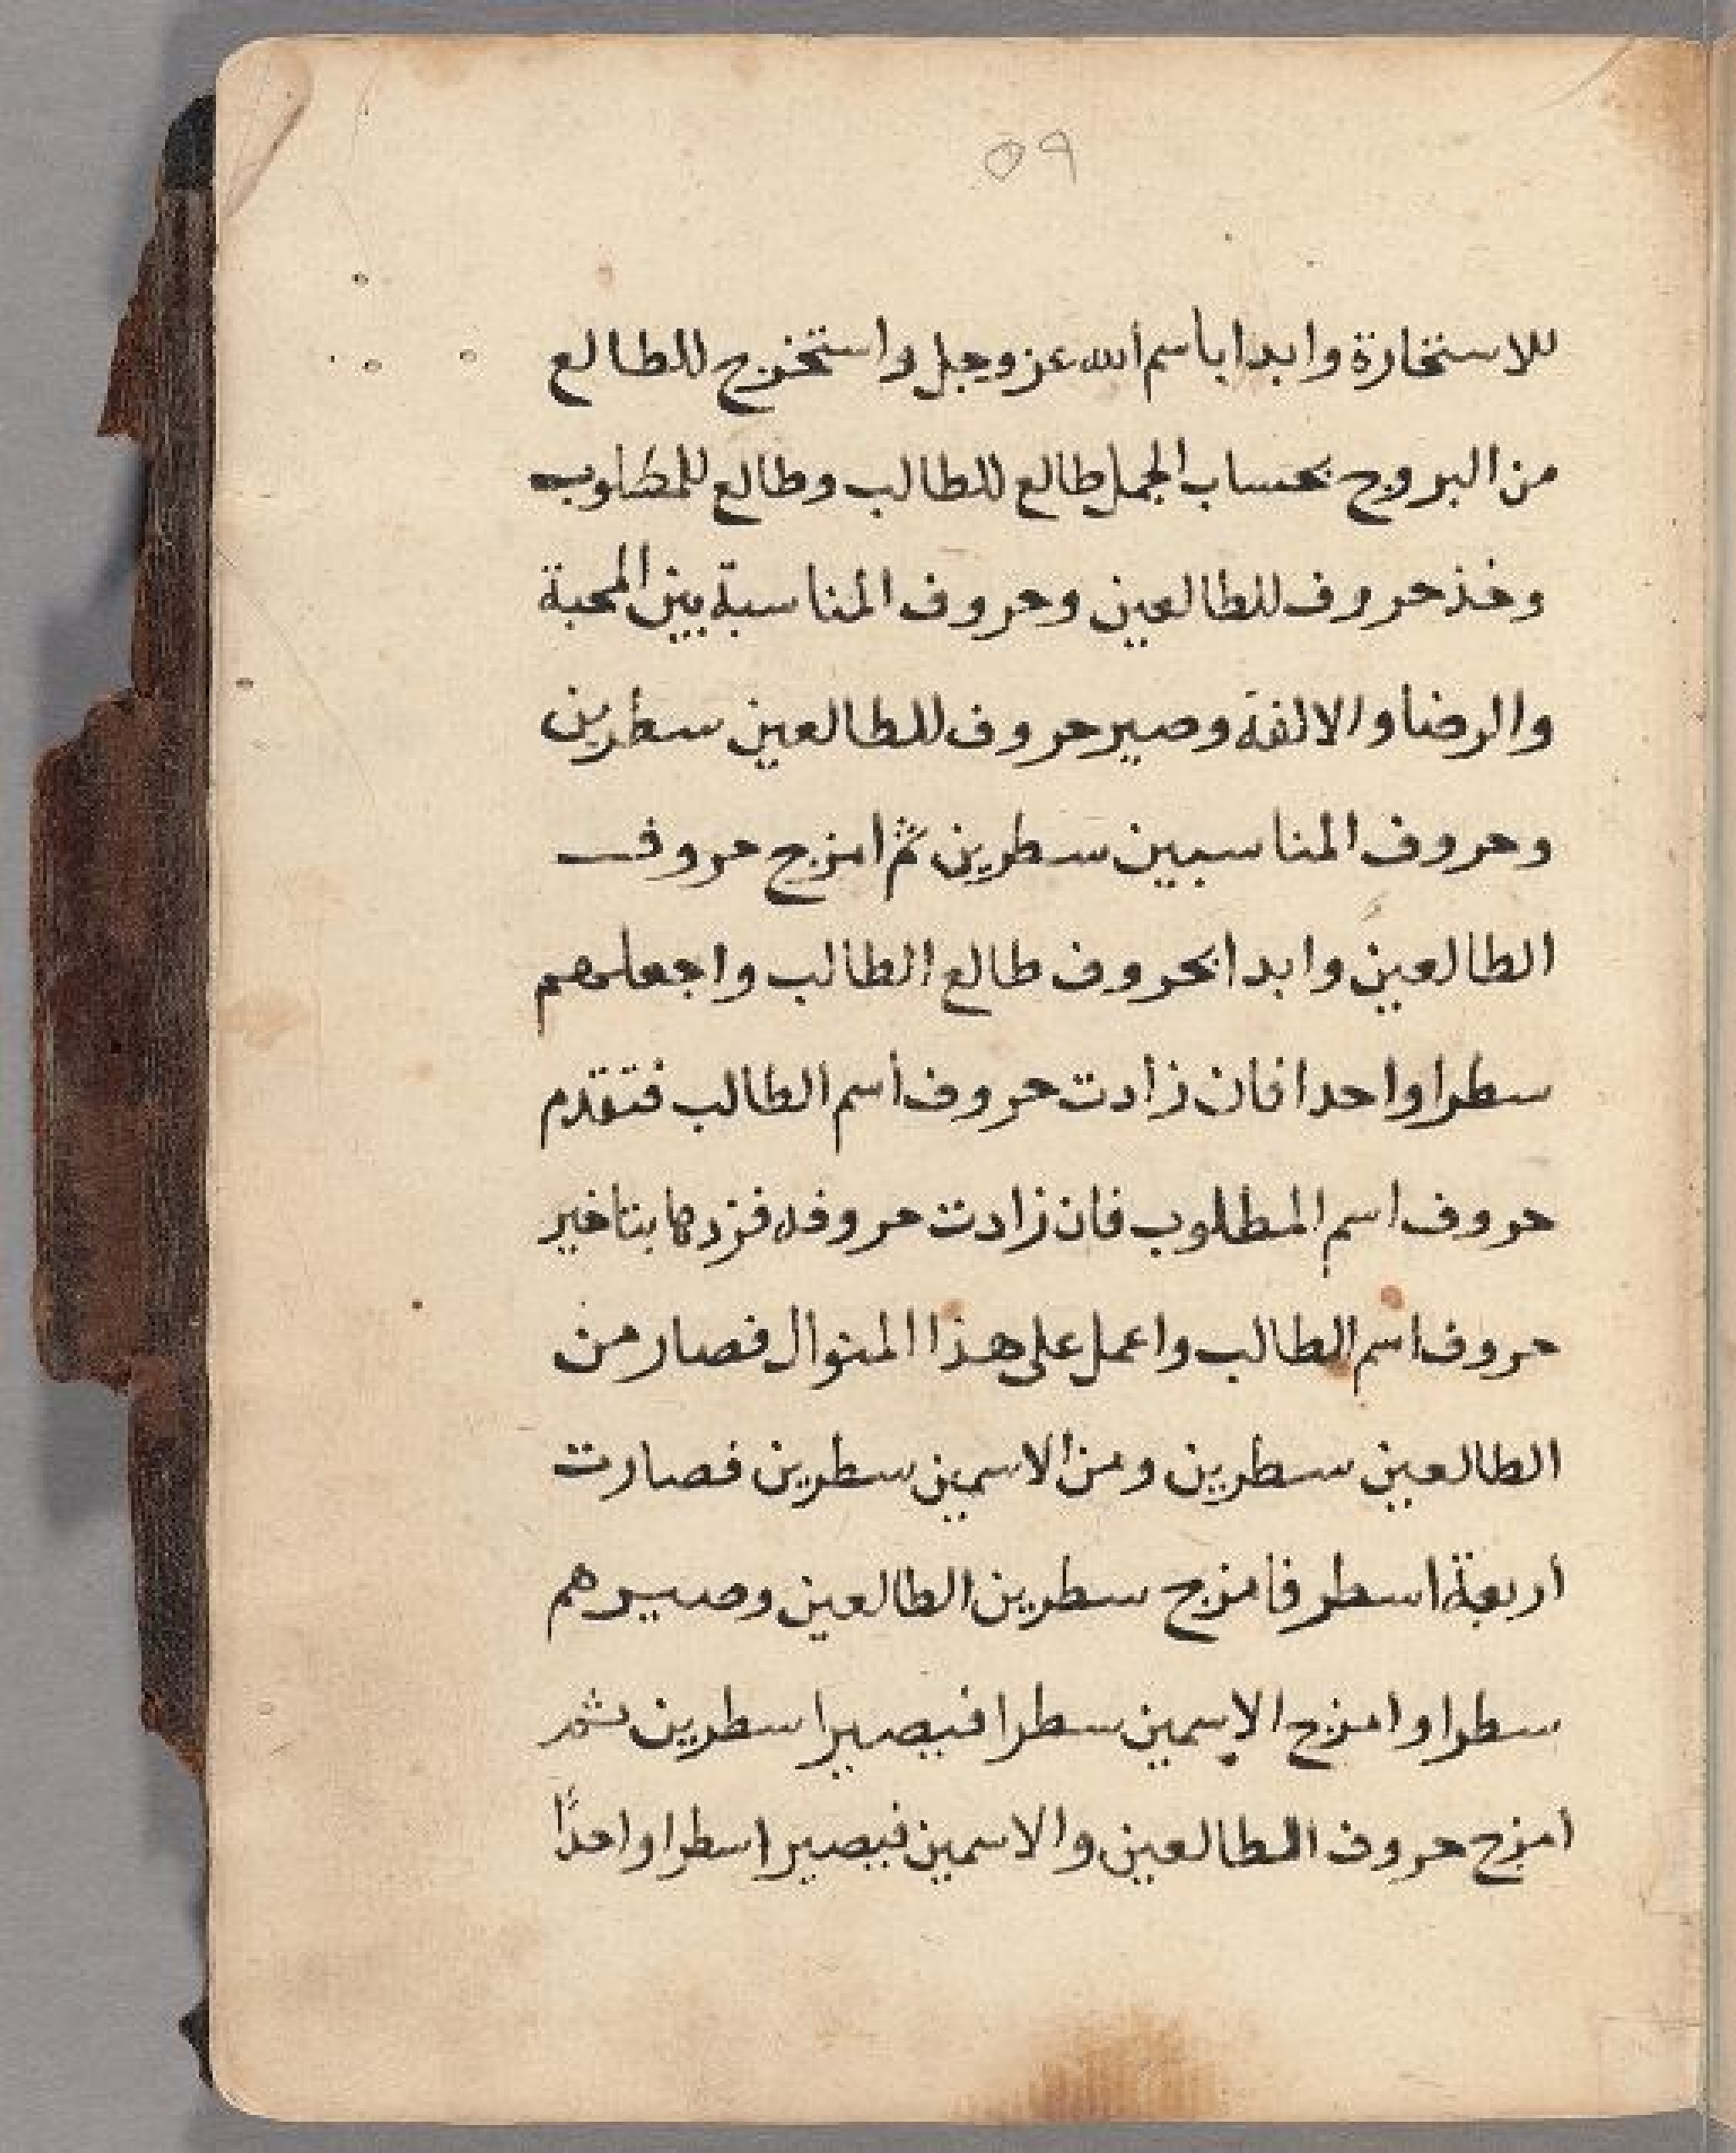 ٥٩
للاستخارة وابدا باسم الله عز وجل واستخرج للطالع
من البروج بحساب الجمل طالع للطالب وطالع للمطلوب
وخذ حروف للطالعين وحروف المناسبة بين المحبة
والرضا والالفة وصير حروف للطالعين سطرين
وحروف المناسبين سطرين ثم امزج حروف
الطالعين وابدا بحروف طالع الطالب واجعلهم
سطرا واحدا فان زادت حروف أسم الطالب فتقدم
حروف اسم المطلوب فان زادت حروفه فزدها بتاخير
حروف اسم الطالب واعمل على هذا المنوال فصار من
الطالعين سطرين ومن الاسمين سطرين فصارت
اربعة اسطر فامزج سطرين الطالعين وصيرهم
سطرا وامزج الاسمين سطرا فيصيرا سطرين ثم
امزج حروف الطالعين والاسمين فيصيرا سطرا واحدًا